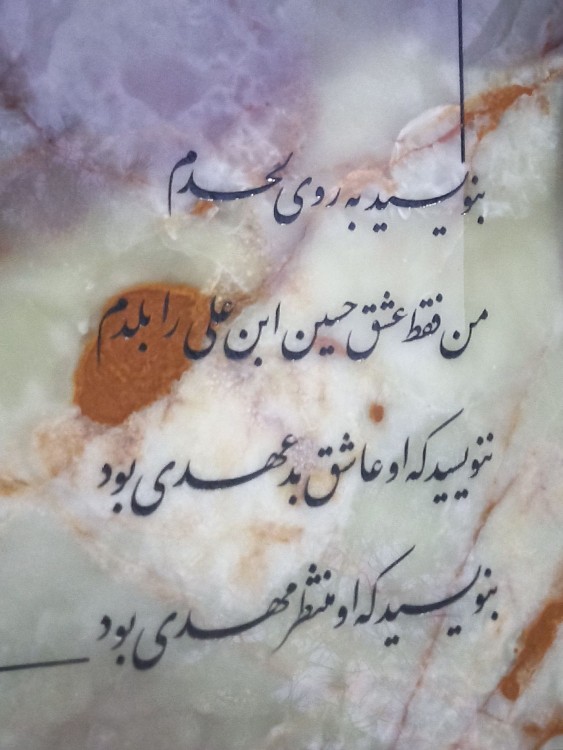 بنویسید به روی لحدم
من فقط عشق حسین ابن علی را بلدم
ننویسید که او عاشق بد عهدی بود
بنویسید که او منتظر مهدی بود